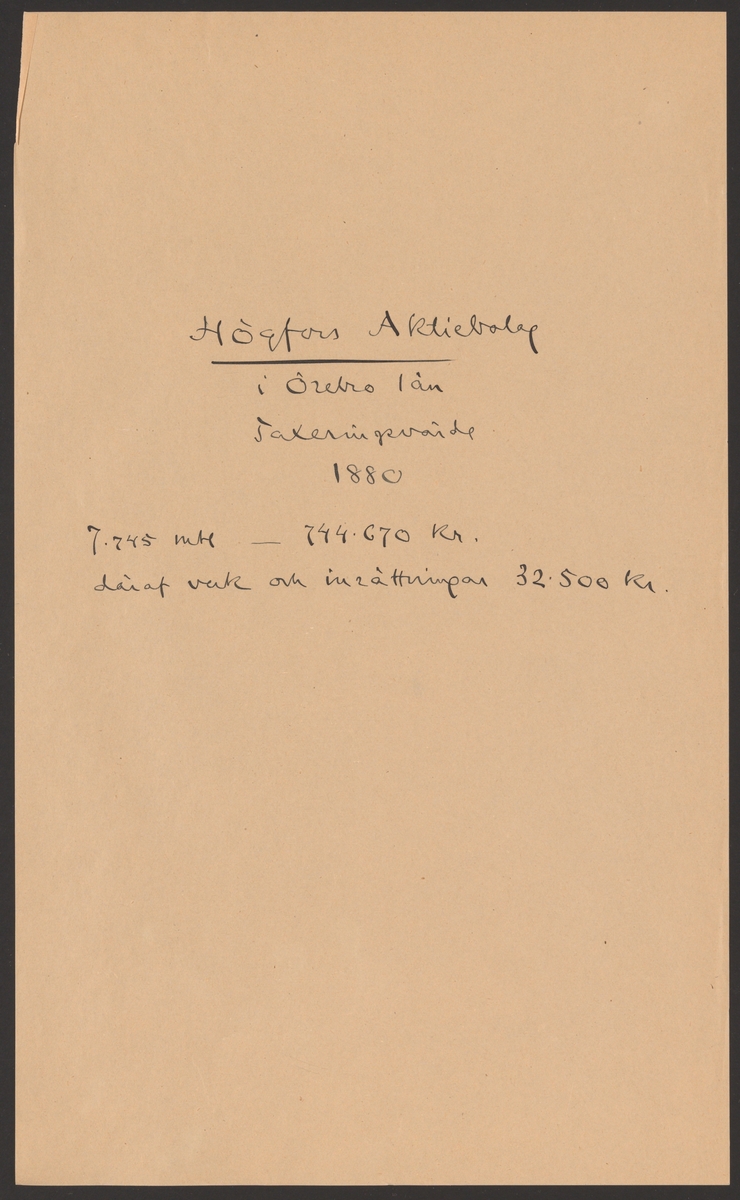 Högfors Aktiebolag
i Örebro län
Taxeringsvärde
1880
7.745 mtl — 744.670 Kr.
däraf verk och inrättningar 32.500 Kr.